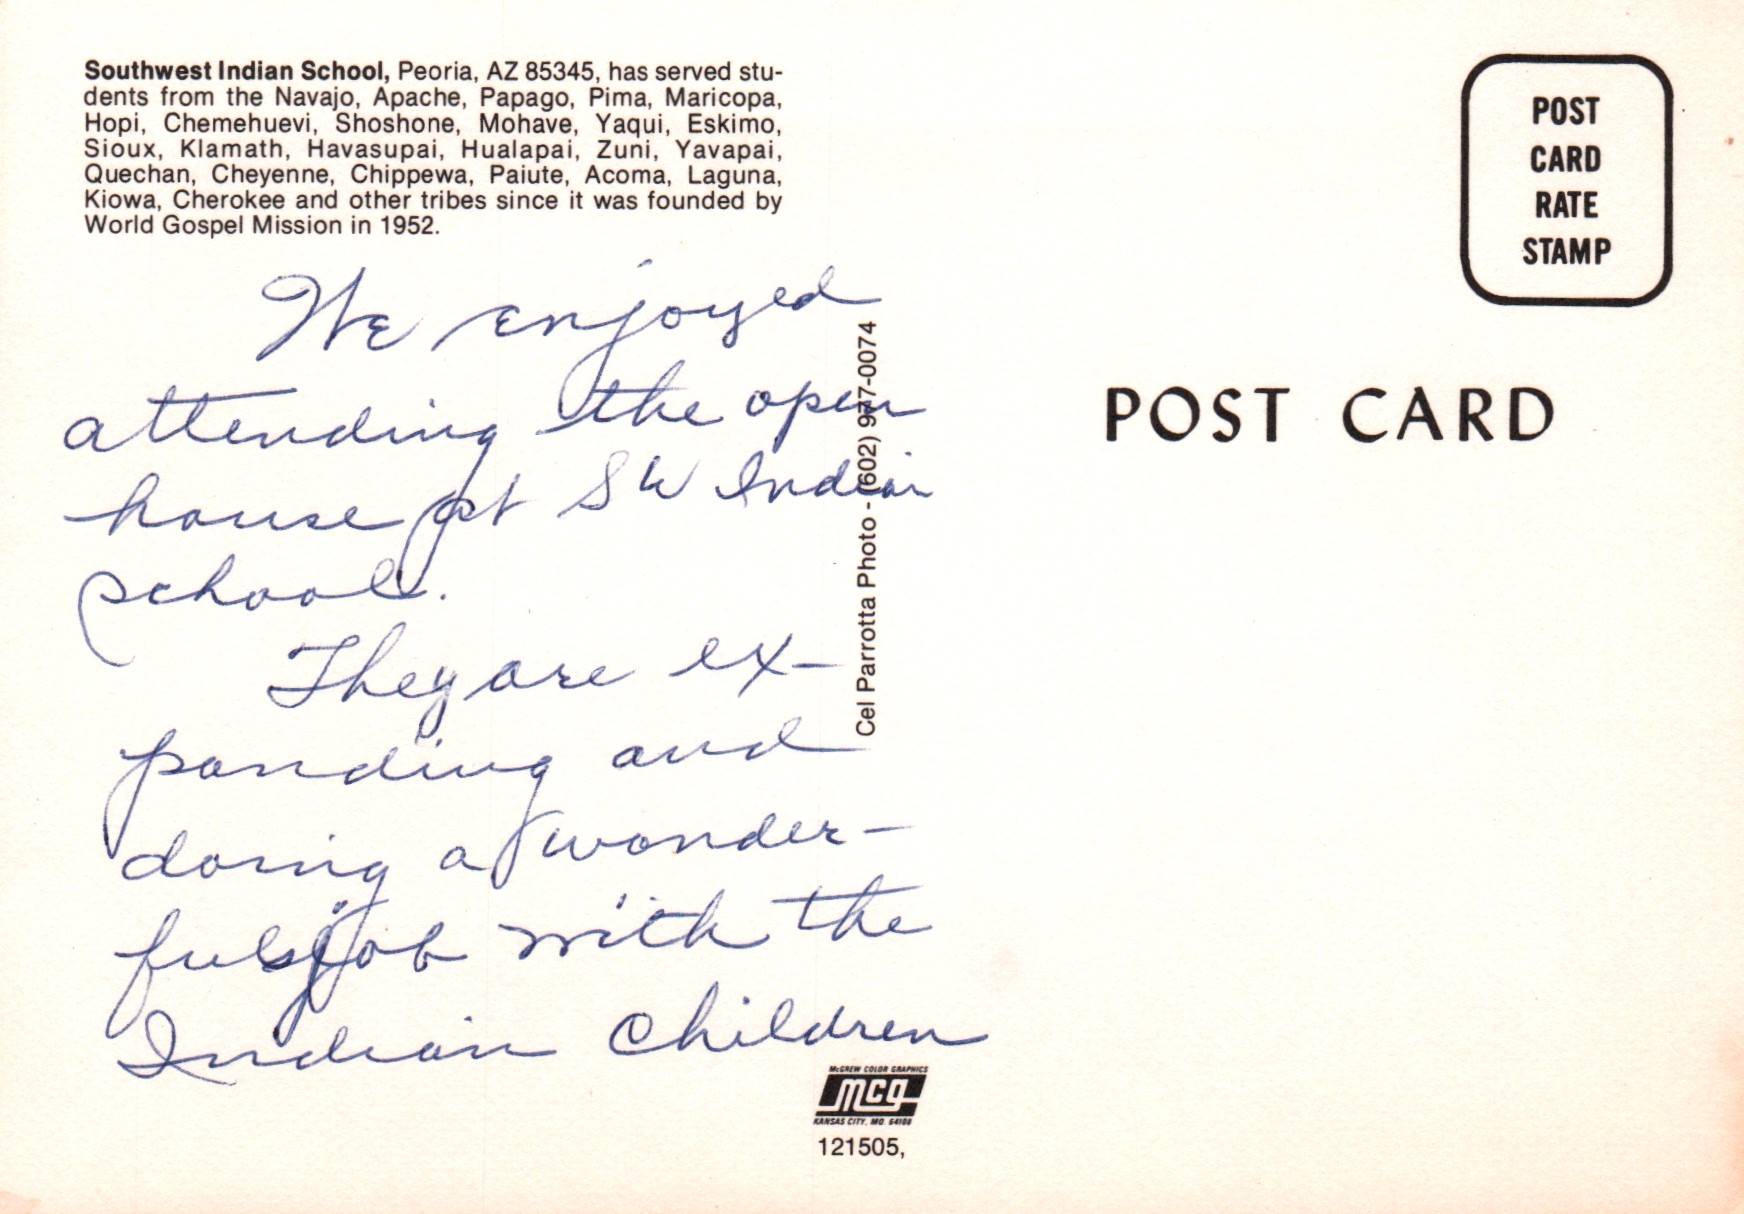 Southwest Indian School, Peoria, AZ 85345, has served stu-
dents from the Navajo, Apache, Papago, Pima, Maricopa,
Hopi, Chemehuevi, Shoshone, Mohave, Yaqui, Eskimo,
Sioux, Klamath, Havasupai, Hualapai, Zuni, Yavapai,
Quechan, Cheyenne, Chippewa, Paiute, Acoma, Laguna,
Kiowa, Cherokee and other tribes since it was founded by
World Gospel Mission in 1952.
We enjoyed
attending the open
house at SW Indian
school.
They are ex-
panding and
doing a wonder-
ful job with the
Indian children
Cel Parrotta Photo - (602) 977-0074
McGREW COLOR GRAPHICS
mcg
KANSAS CITY, MO. 64108
121505,
POST
CARD
RATE
STAMP
POST CARD